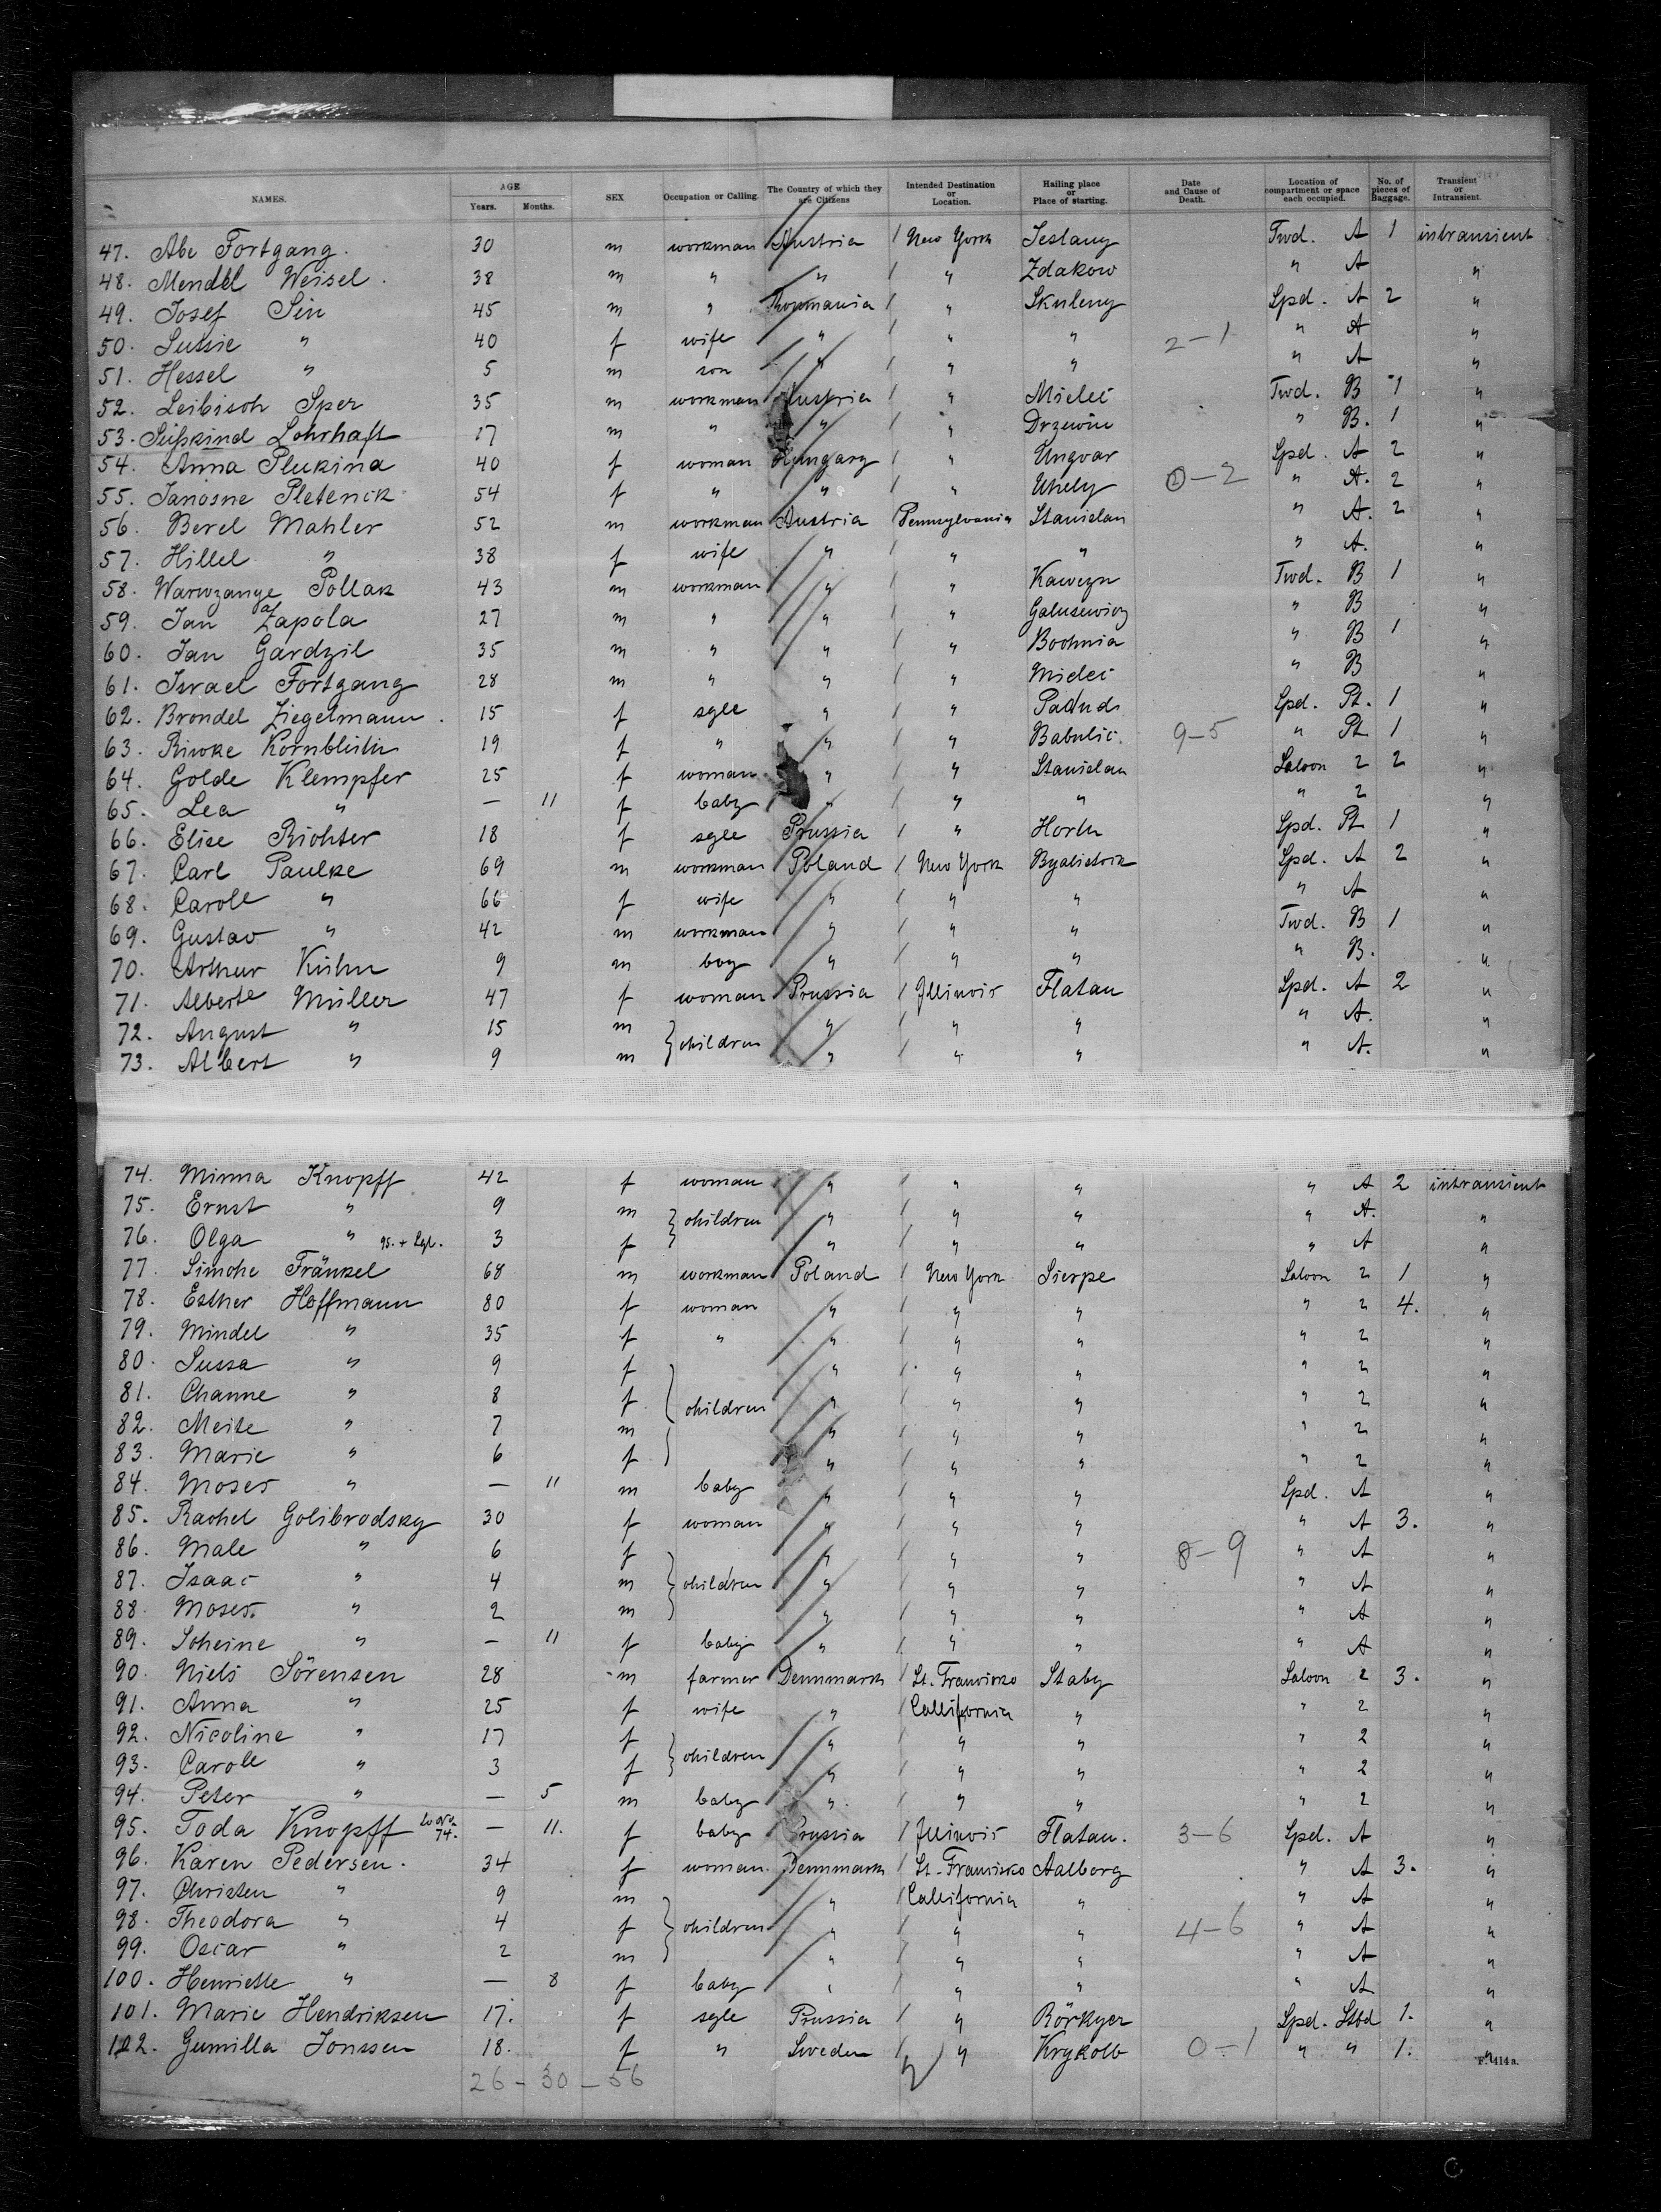 NAMES. AGE Years. Months. SEX Occupation or Calling. The Country of which they are Citizens Intended Destination or Location. Hailing place or Place of starting. Date and Cause of Death. Location of compartment or space each occupied. No. of pieces of Baggage. Transient or Intransient.
47. Abe Fortgang. 30 m workman Austria / New York Jeslany Twd. A 1 intransient
48. Mendel Weisel. 38 m " " / " Zdakow " A "
49. Josef Sin 45 m " Roumania / " Skuleny Spd. A 2 "
50. Sussie " 40 f wife " / " " 2-1 " A "
51. Hessel " 5 m son " / " " " A "
52. Leibisch Sper 35 m workman Austria / " Mielec Twd. B 1 "
53. Süßkind Lohrhaft 17 m " " / " Drzewin " B. 1 "
54. Anna Plukina 40 f woman Hungary / " Ungvar Spd. A 2 "
55. Janosne Pletenck 54 f " " / " Uhely 0-2 " A. 2 "
56. Berel Mahler 52 m workman Austria Pennsylvania Stanislau " A. 2 "
57. Hillel " 38 f wife " / " " " A. "
58. Warwzange Pollak 43 m workman " / " Kawezyn Twd. B 1 "
59. Jan Zapola 27 m " " / " Galusewicz " B "
60. Jan Gardzil 35 m " " / " Bochnia " B 1 "
61. Israel Fortgang 28 m " " / " Mielec " B "
62. Brondel Ziegelmann. 15 f sgle " / " Spd. Pt. 1 "
63. Riwke Kornblüh 19 f " " / " Babulic. 9-5 " Pt 1 "
64. Golde Klempfer 25 f woman " / " Stanislau Saloon 2 2 "
65. Lea " — 11 f baby " / " " " 2 "
66. Elise Richter 18 f sgle Prussia / " Horth Spd. Pt 1 "
67. Carl Paulke 69 m workman Poland / New York Byalistock Spd. A 2 "
68. Caroll " 66 f wife " / " " " A "
69. Gustav " 42 m workman " / " " Twd. B 1 "
70. Arthur Kühn 9 m boy " / " " " B. "
71. Alberte Müller 47 f woman Prussia / Illinois Flatau Spd. A 2 "
72. August " 15 m } children " / " " " A. "
73. Albert " 9 m " / " " " A. "
74. Minna Knopff 42 f woman " / " " " A 2 intransient
75. Ernst " 9 m } children " / " " " A. "
76. Olga " 95. + 3 f " / " " " A "
77. Simche Fränkel 68 m workman Poland / New York Sierpe Saloon 2 1 "
78. Esther Hoffmann 80 f woman " / " " " 2 4. "
79. Mindel " 35 f " " / " " " 2 "
80. Sussa " 9 f " / " " " 2 "
81. Channe " 8 f } children " / " " " 2 "
82. Meite " 7 m " / " " " 2 "
83. Marie " 6 f " / " " " 2 "
84. Moses " — 11 m baby " / " " Spd. A "
85. Rachel Golibrodsky 30 f woman " / " " " A 3. "
86. Male " 6 f " / " " 8-9 " A "
87. Isaac " 4 m } children " / " " " A "
88. Moses. " 2 m " / " " " A "
89. Scheine " — 11 f baby " / " " " A "
90. Niels Sörensen 28 m farmer Dennmark / St. Francisko Staby Saloon 2 3. "
91. Anna " 25 f wife " / Callifornia " " 2 "
92. Nicoline " 17 f } children " / " " " 2 "
93. Caroll " 3 f " / " " " 2 "
94. Peter " — 5 m baby " / " " " 2 "
95. Toda Knopff to No. 74. — 11. f baby Prussia / Illinois Flatau. 3-6 Spd. A "
96. Karen Pedersen. 34 f woman. Dennmark / St. Francisko Aalborg " A 3. "
97. Christen " 9 m " / Callifornia " " A "
98. Theodora " 4 f } children " / " " 4-6 " A "
99. Oscar " 2 m " / " " " A "
100. Henriette " — 8 f baby " / " " " A "
101. Marie Hendriksen 17. f sgle Prussia / " Rörkyer Spd. Stbd 1. "
102. Gunilla Jonssen 18. f " Sweden / " Krykolb 0-1 " " 1. "
F. 414a.
26-30-56